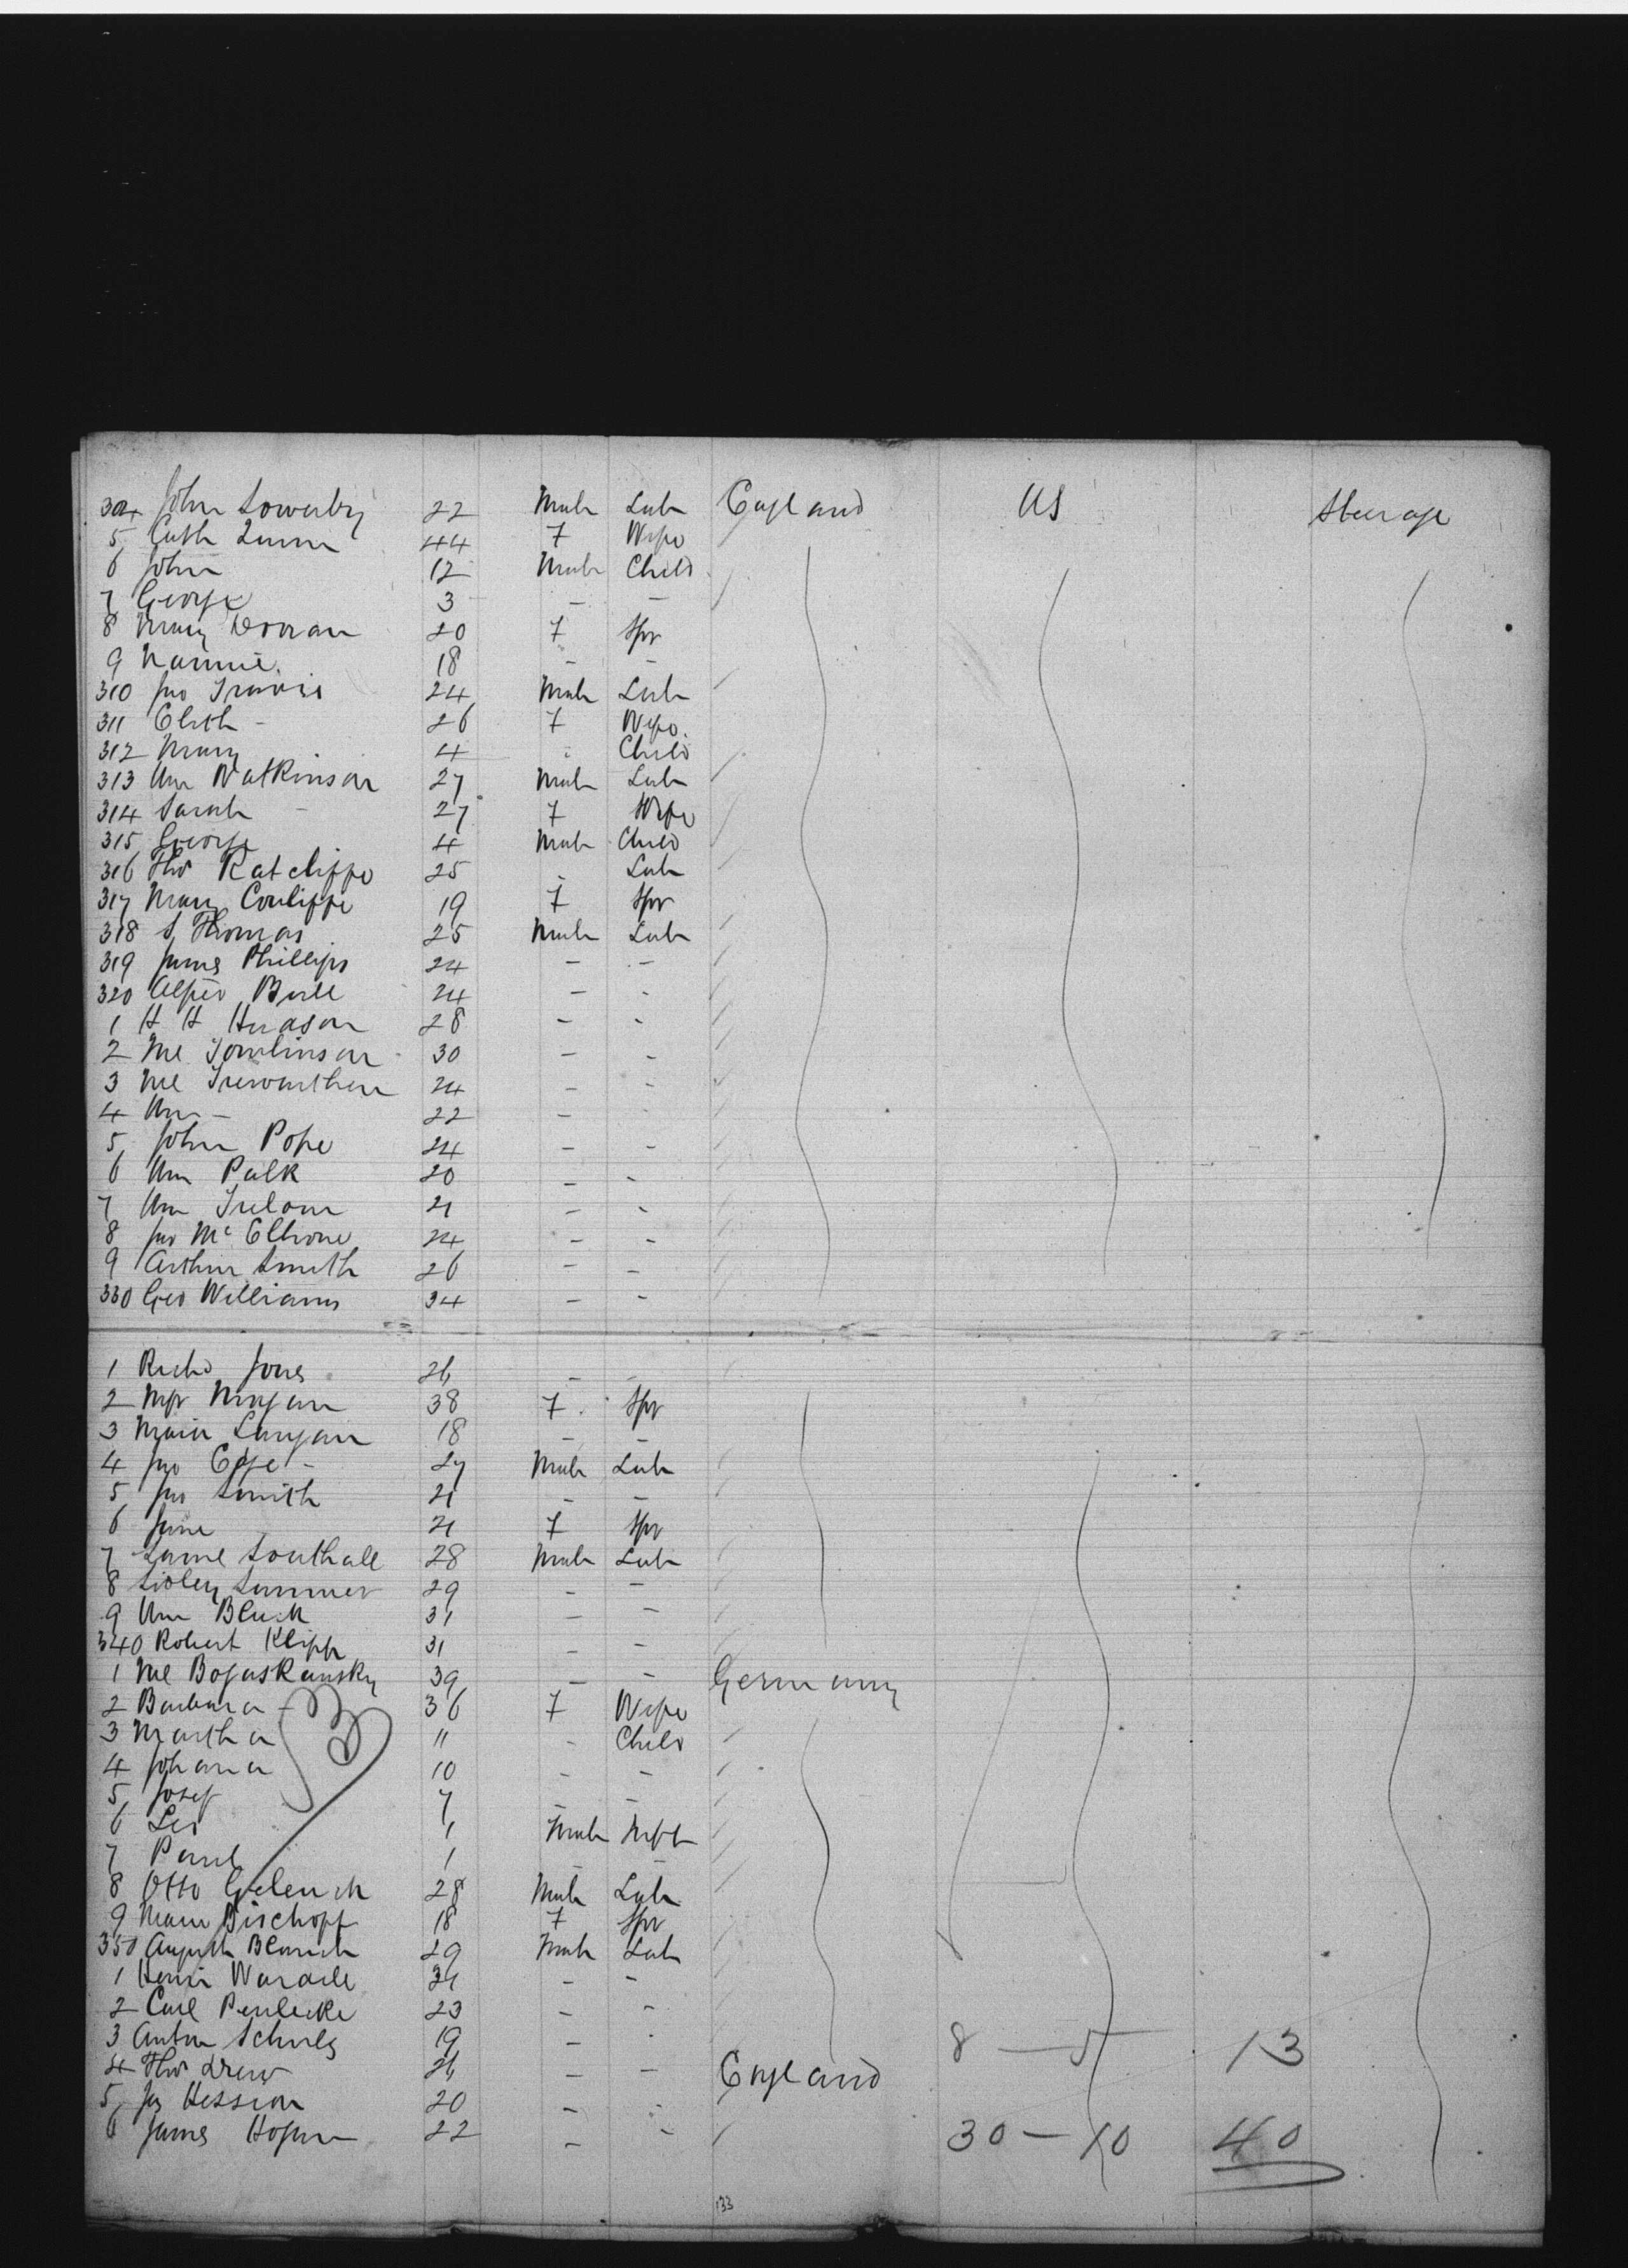 304 John Sowerby 22 Male Lab England US Steerage
5 Cath Quinn 44 F Wife
6 John 12 Male Child
7 George 3 - -
8 Mary Doran 20 F Spr
9 Nannie 18 - -
310 Jno Travis 24 Male Lab
311 Elisth - 26 F Wife
312 Mary 4 " Child
313 Wm Watkinson 27 Male Lab
314 Sarah - 27 F Wife
315 George 4 Male Child
316 Thos Ratcliffe 25 - Lab
317 Mary Conliffe 19 F Spr
318 S Thomas 25 Male Lab
319 James Phillips 24 - -
320 Alfred Bull 24 - -
1 H H Hudson 28 - -
2 Ml Tomlinson 30 - -
3 Ml Trewarthen 24 - -
4 Wm - 22 - -
5 John Pope 24 - -
6 Wm Palk 20 - -
7 Wm 21 - -
8 Jno McElhone 24 - -
9 Arthur Smith 26 - -
330 Geo Williams 34 - -
1 Richd Jones 26 - -
2 Mgt Morgan 38 F Spr
3 Maria Langan 18 - -
4 Jno Edge - 27 Male Lab
5 Jno Smith 21 - -
6 Jane 21 F Spr
7 Southall 28 Male Lab
8 Sidley Summer 29 - -
9 Wm Black 31 - -
340 Robert Klipp 31 - -
1 Ml Bogaskansky 39 - - Germany
2 Barbara - 36 F Wife
3 Martha 11 - Child
4 Johana 10 - -
5 Josef 7 - -
6 Leo 1 Male Inft
7 Paul 1 -
8 Otto 28 Male Lab
9 Marie Bischoff 18 F Spr
350 August 29 Male Lab
1 - -
2 Carl 23 - -
3 Anton Schulz 19 - - 8 - 5 13
4 Thos Drew 26 - - England
5 Js Hession 20 - -
6 James Hogan 22 - - 30 - 10 40
133